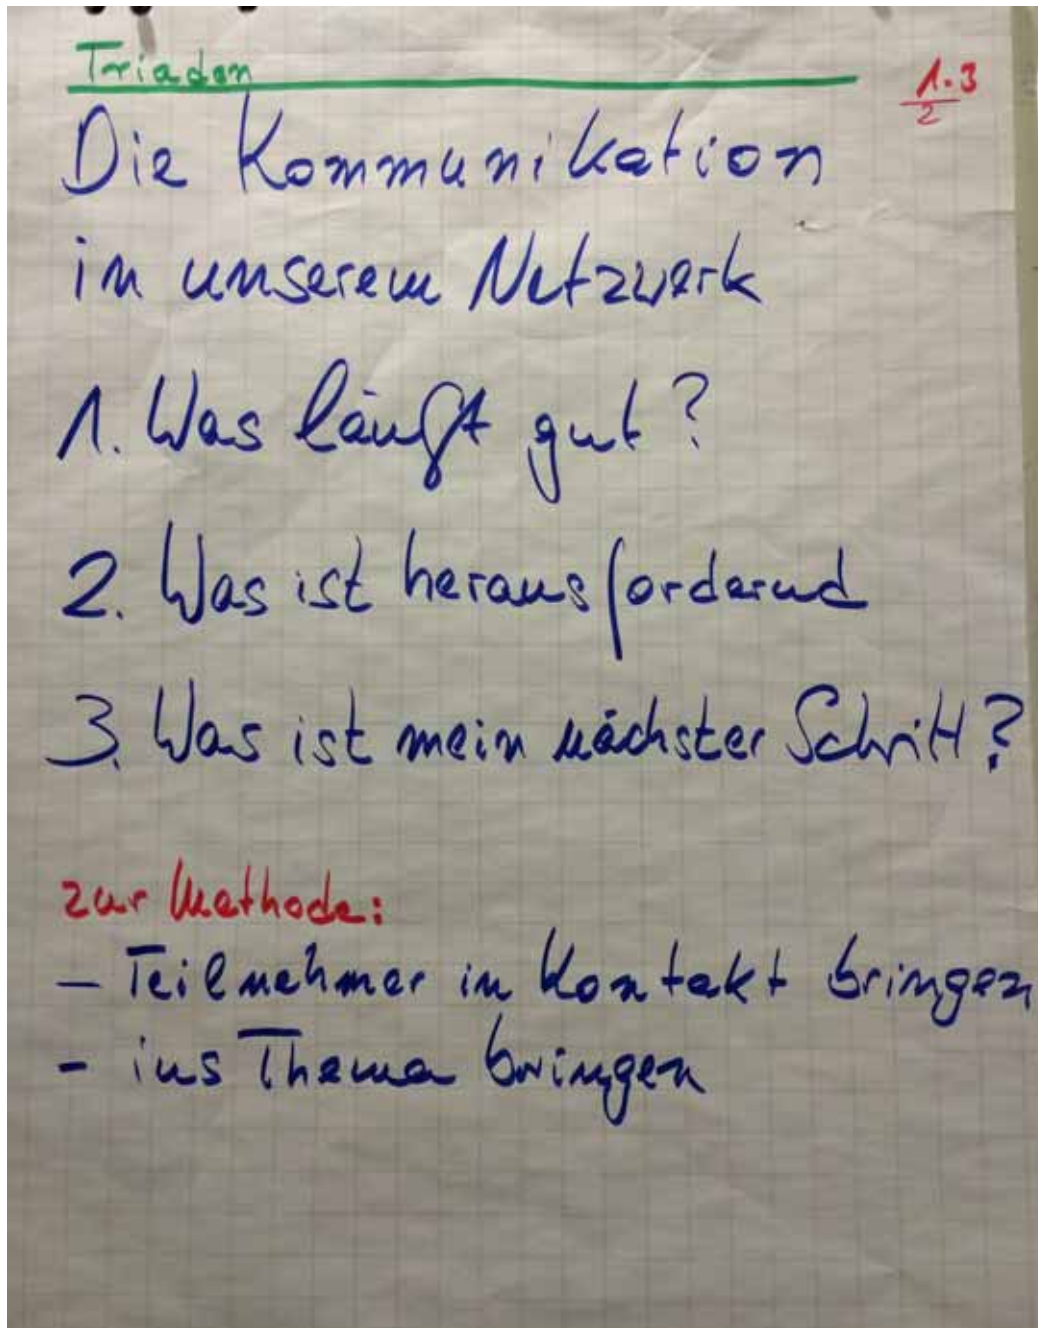 Triaden
1.3
2
Die Kommunikation
in unserem Netzwerk
1. Was läuft gut?
2. Was ist herausfordernd
3. Was ist mein nächster Schritt?
zur Methode:
- Teilnehmer in Kontakt bringen
- ins Thema bringen